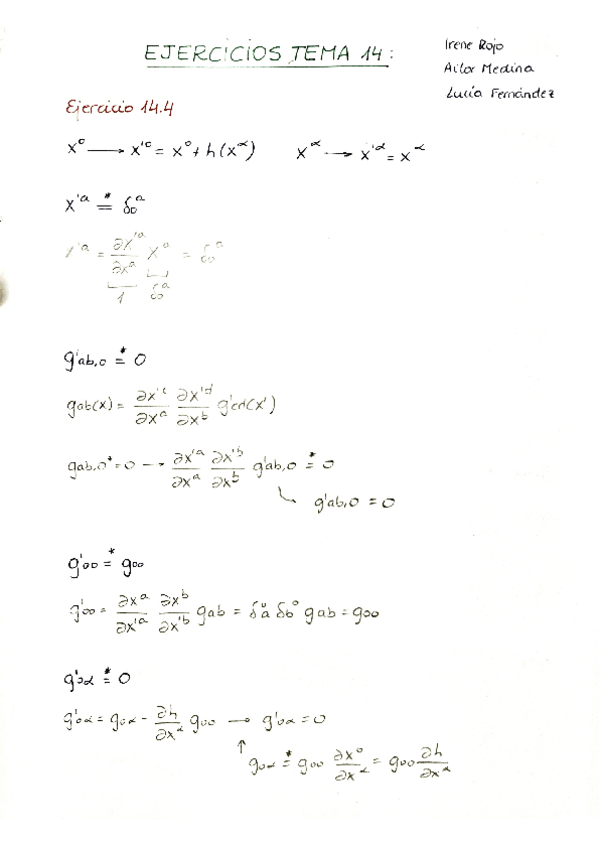 EJERCICIOS TEMA 14:
Irene Rojo
Aitor Medina
Lucía Fernández
Ejercicio 14.4
x⁰ → x'⁰ = x⁰ + h(x^α)   x^α → x'^α = x^α
X'^a =* δ₀^a
X'^a = ∂x'^a/∂x^a X^a = δ₀^a
1   δ₀^a
g'ab,0 =* 0
gab(x) = ∂x'^c/∂x^a ∂x'^d/∂x^b g'cd(x')
gab,0 =* 0 → ∂x'^a/∂x^a ∂x'^b/∂x^b g'ab,0 =* 0
↳ g'ab,0 = 0
g'00 =* g00
g'00 = ∂x^a/∂x'^a ∂x^b/∂x'^b gab = δa^0 δb^0 gab = g00
g'0α =* 0
g'0α = g0α - ∂h/∂x^α g00 → g'0α = 0
↑ g0α =* g00 ∂x⁰/∂x^α = g00 ∂h/∂x^α